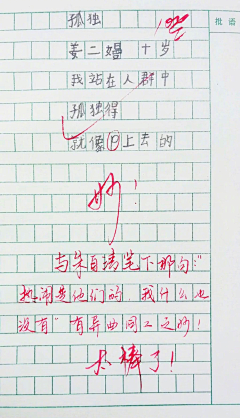 批语
孤独
姜二嫚 十岁
我站在人群中
孤独得
就像P上去的
妙!
与朱自清笔下那句:"
热闹是他们的,我什么也
没有"有异曲同工之妙!
太棒了!